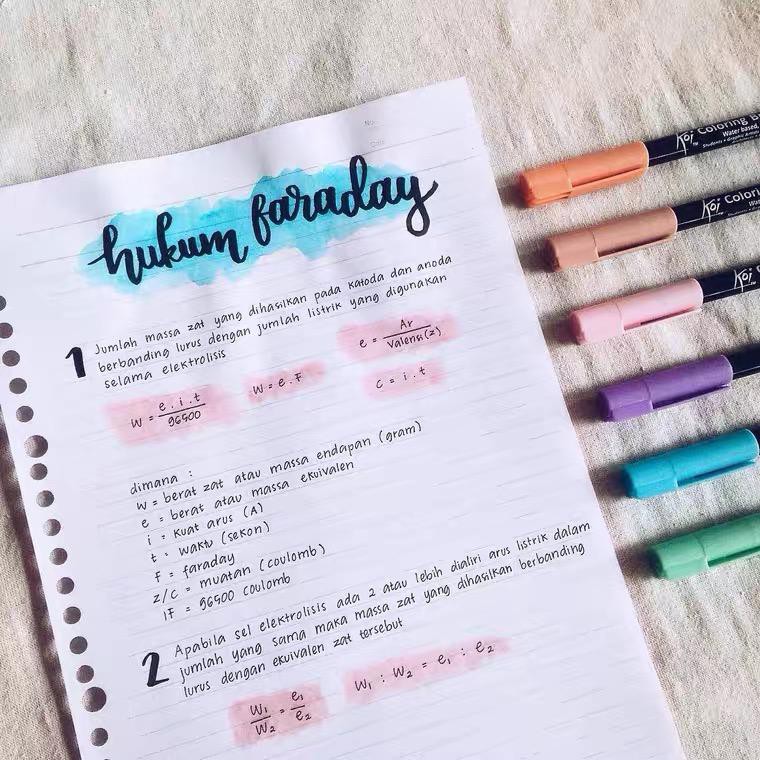 No.
Date
hukum faraday
1 Jumlah massa zat yang dihasilkan pada katoda dan anoda
berbanding lurus dengan jumlah listrik yang digunakan
selama elektrolisis
e = Ar / Valensi(z)
W = e . i . t / 96500
W = e . F
C = i . t
dimana :
W = berat zat atau massa endapan (gram)
e = berat atau massa ekuivalen
i = kuat arus (A)
t = waktu (sekon)
F = faraday
z/C = muatan (coulomb)
1F = 96500 coulomb
2 Apabila sel elektrolisis ada 2 atau lebih dialiri arus listrik dalam
jumlah yang sama maka massa zat yang dihasilkan berbanding
lurus dengan ekuivalen zat tersebut
W₁ / W₂ = e₁ / e₂
W₁ : W₂ = e₁ : e₂
Koi™ Coloring B
Water based,
Students • Graphic Artists
Koi™ Colori
Wa
Koi